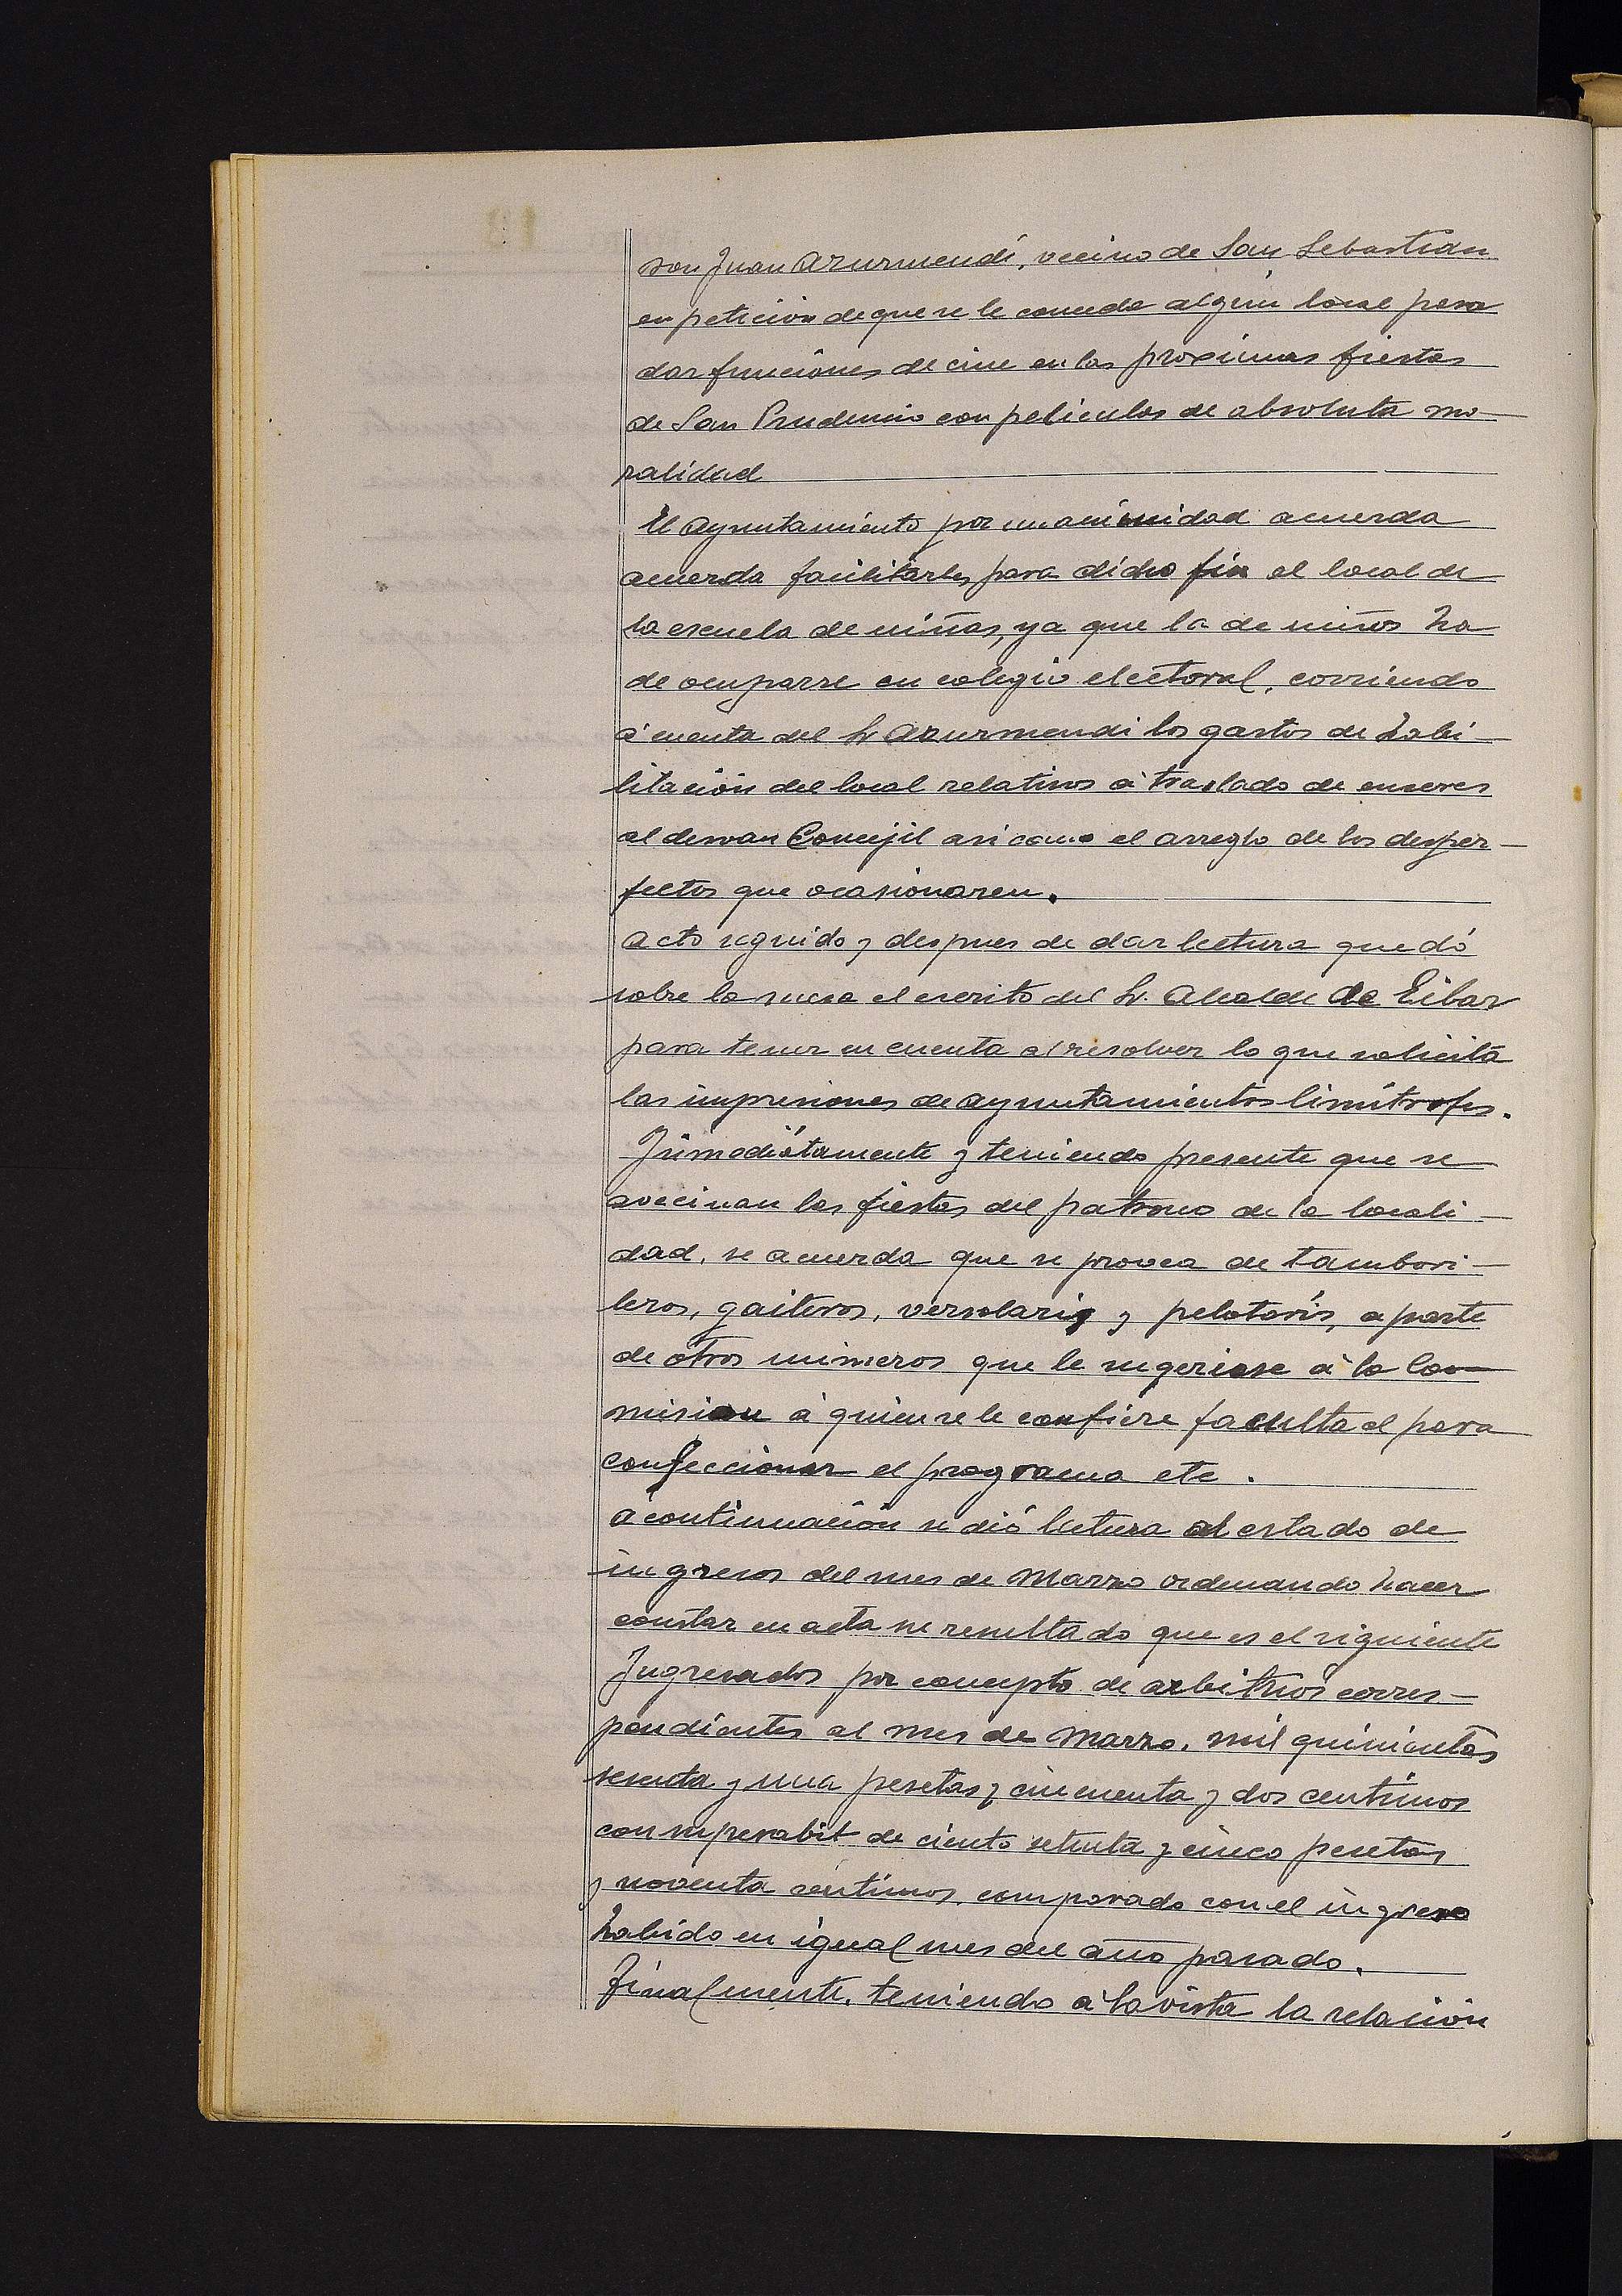 son Juan Azurmendi, vecino de San Sebastian
en petición de que se le conceda algun local para
dar funciones de cine en las proximas fiestas
de San Prudencio con peliculas de absoluta mo-
ralidad
El Ayuntamiento por unanimidad acuerda
acuerda facilitarles para dicho fin el local de
la escuela de niñas, ya que la de niños ha
de ocuparse en colegio electoral, corriendo
á cuenta del Sr Azurmendi los gastos de habi-
litación del local relativos á traslado de enseres
al desvan Concejil asi como el arreglo de los desper-
fectos que ocasionaren.
Acto seguido y despues de dar lectura quedó
sobre la mesa el escrito del Sr. Alcalde de Eibar
para tener en cuenta al resolver lo que solicita
las impresiones de ayuntamientos limítrofes.
Inmediatamente y teniendo presente que se
avecinan las fiestas del patrono de la locali-
dad, se acuerda que se provea de tambori-
leros, gaiteros, versolaris y pelotaris, aparte
de otros números que le sugeriese á la Co-
mision á quien se le confiere facultad para
confeccionar el programa etc.
A continuación se dió lectura al estado de
ingresos del mes de Marzo ordenando hacer
constar en acta su resultado que es el siguiente
Ingresados por concepto de arbitrios corres-
pondientes al mes de Marzo, mil quinientas
sesenta y una pesetas y cincuenta y dos centimos
con superabit de ciento setenta y cinco pesetas
y noventa céntimos, comparado con el ingreso
habido en igual mes del año pasado.
Finalmente, teniendo á la vista la relación